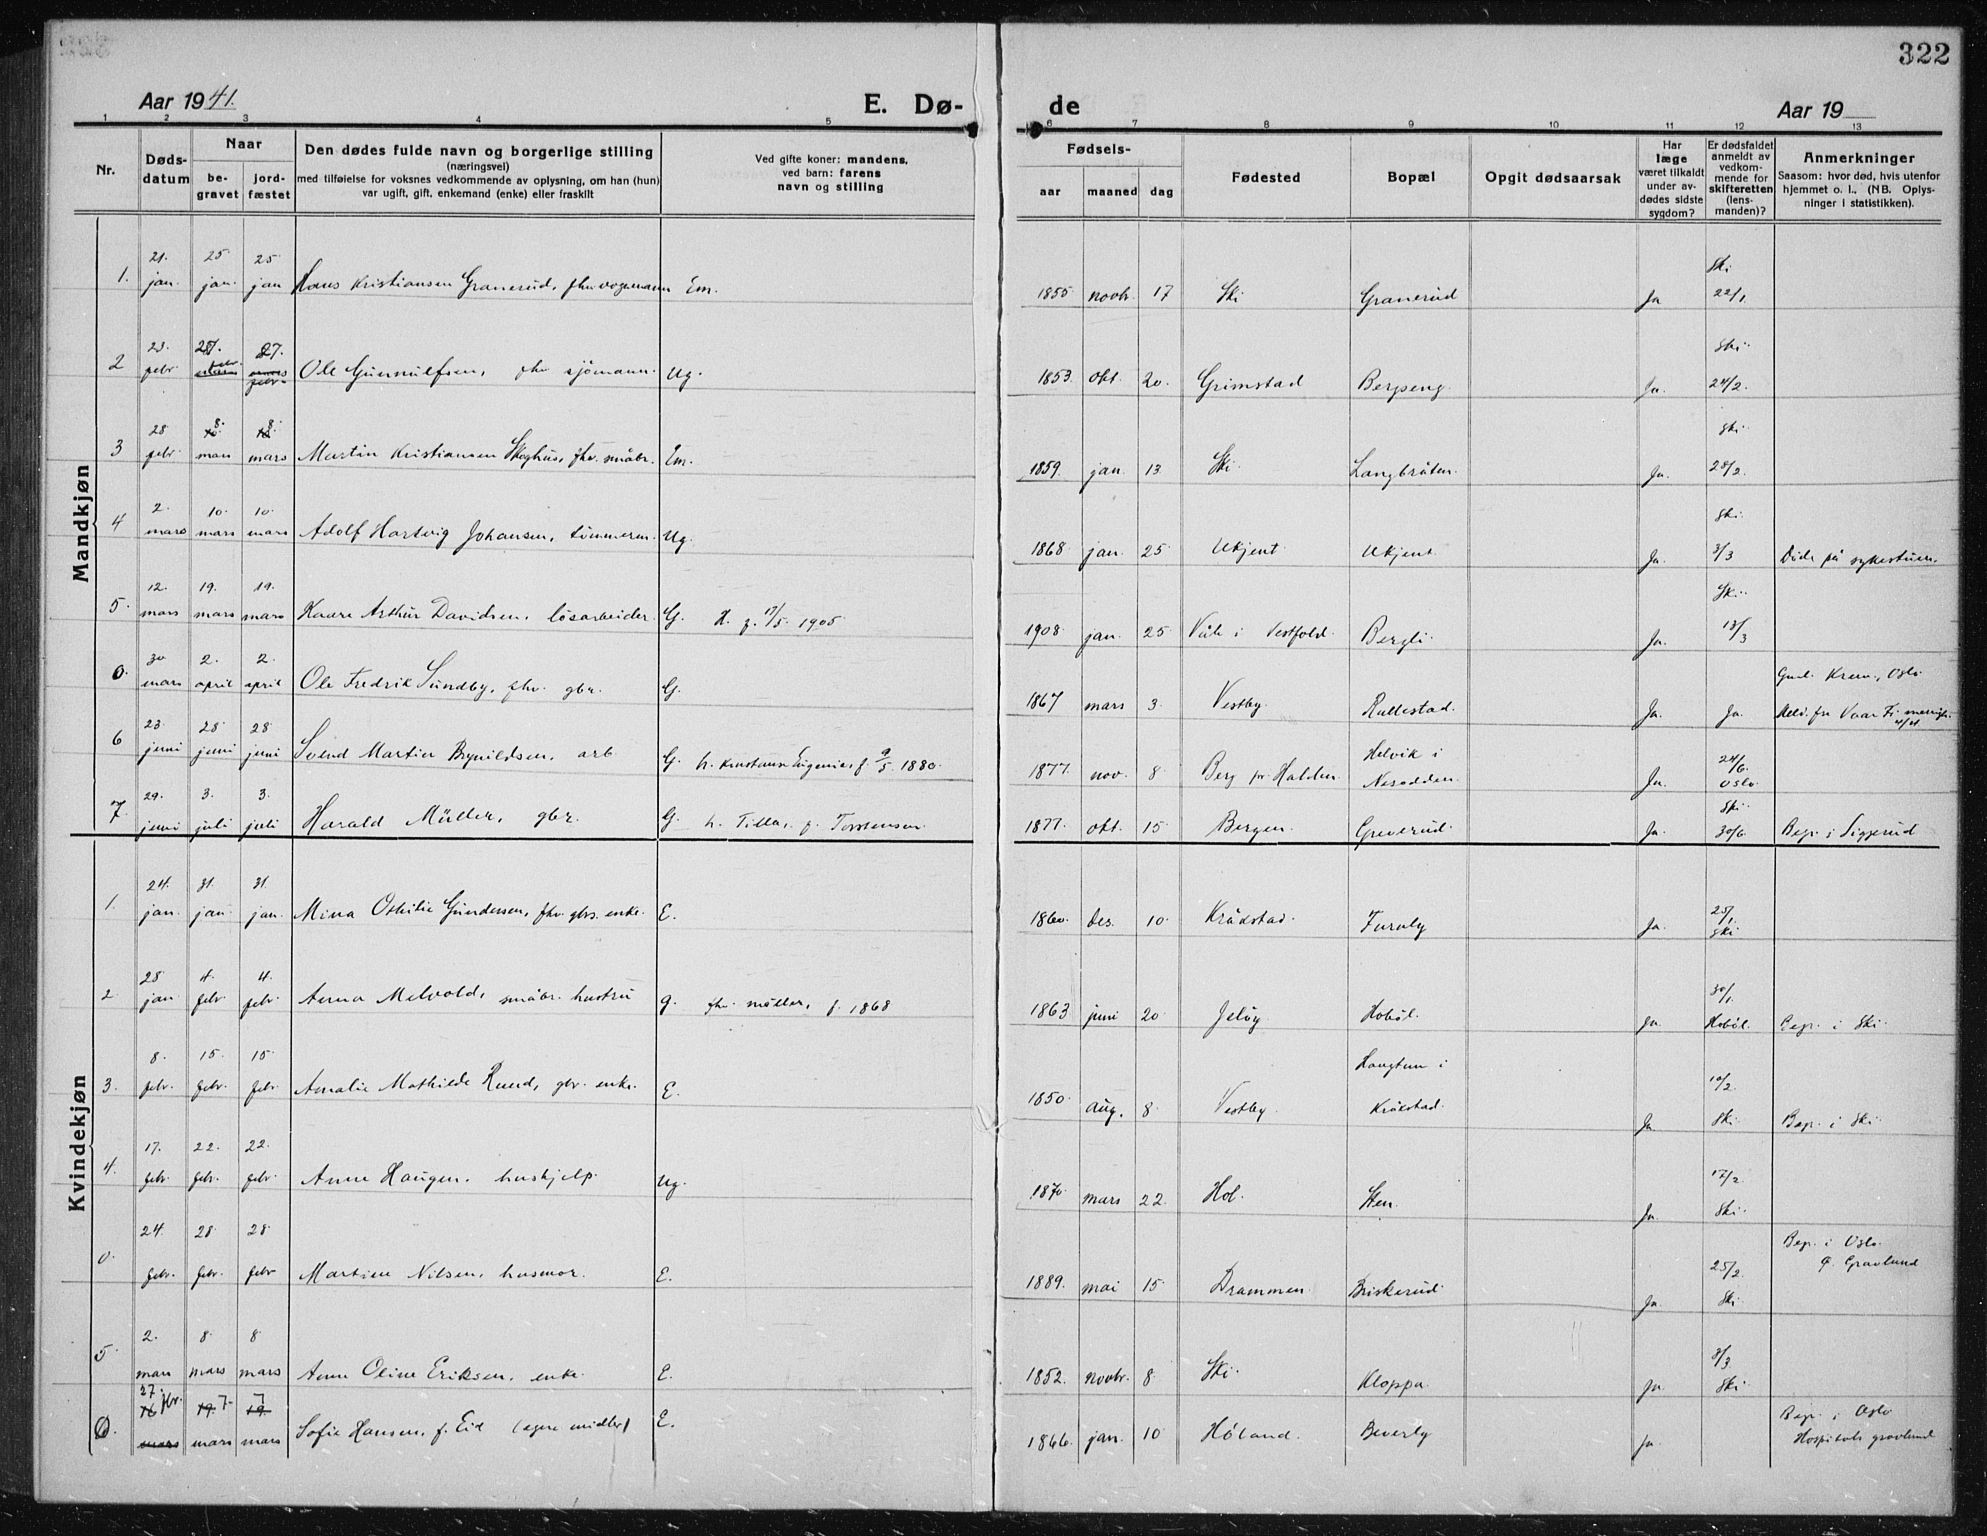 322
Aar 1941.
E. Dø-
de
Aar 19
1 2 3 4 5 6 7 8 9 10 11 12 13
Nr.
Døds-
datum
Naar
be-
gravet
jord-
fæstet
Den dødes fulde navn og borgerlige stilling
(næringsvei)
med tilføielse for voksnes vedkommende av oplysning, om han (hun)
var ugift, gift, enkemand (enke) eller fraskilt
Ved gifte koner: mandens,
ved barn: farens
navn og stilling
Fødsels-
aar maaned dag
Fødested
Bopæl
Opgit dødsaarsak
Har
læge
været tilkaldt
under av-
dødes sidste
sygdom?
Er dødsfaldet
anmeldt av
vedkom-
mende for
skifteretten
(lens-
manden)?
Anmerkninger
Saasom: hvor død, hvis utenfor
hjemmet o. l., (NB. Oplys-
ninger i statistikken).
Mandkjøn
1. 21. jan. 25 jan. 25 jan Hans Kristiansen Granerud, fhv. vognmann Em. 1855 novbr. 17 Ski Granerud Ja Ski 22/1.
2 23. febr. 27. febr. 27. febr. Ole Gunnulfsen, fhv. sjömann. Ug. 1853. okt. 20. Grimstad Bergseng. Ja. Ski. 24/2.
3 28 febr. 8. mars 8. mars Martin Kristiansen Skoghus, fhv. småbr. Em. 1859. jan. 13. Ski. Langbråten. Ja. Ski. 28/2.
4 2. mars 10. mars 10. mars Adolf Hartvig Johansen, tömmerm. Ug. 1868 jan. 25 Ukjent Ukjent Ja. Ski. 3/3 Döde på sykestuen.
5. 12. mars 19. mars 19. mars Kaare Arthur Davidsen, lösarbeider. G. H. f. 17/5. 1905 1908. jan. 25 Våle i Vestfold. Bergli. Ja. Ski. 13/3
0. 30 mars 2. april 2. april Ole Fredrik Sundby, fhv. gbr. G. 1867 mars 3. Vestby. Rullestad. Ja. Ja. Gml. Krem., Oslo
Meld. fra Vaar Fr. menigh.
6 23. juni 28 juni 28 juni Svend Martin Brynildsen, arb G. h. Konstanse Eugenie, f. 9/5. 1880. 1877. nov. 8 Berg pr Halden Helvik i Nesodden. Ja. 24/6. Oslo.
7. 29. juni 3. juli 3. juli Harald Müller, gbr. G. h. Tilla, f. Torstensen 1877. okt. 15 Bergen. Greverud. Ja. Ski. 30/6. Begr. i Siggerud
Kvindekjøn
1. 24. jan. 31. jan. 31. jan. Mina Othilie Gundersen, fhv. gbrs. enke. E. 1860. des. 10 Kråkstad. Furuly Ja. 25/1. Ski.
2 28 jan 4. febr. 4. febr. Anna Melvold, småbr. hustru g. fhv. möller, f. 1868 1863 juni 20 Jelöy. Hoböl. Ja 30/1. Hoböl. Begr. i Ski.
3. 8. febr. 15. febr. 15. febr. Amalie Mathilde Ruud, gbr. enke. E. 1850. aug. 8 Vestby. Haugtun i Kråkstad. Ja 10/2. Ski. Begr. i Ski.
4. 17. febr. 22. febr. 22. febr. Anne Haugen, hushjelp. Ug. 1870 mars 22. Hol. Sten. Ja. 17/2. Ski.
0. 24. febr. 28 febr. 28 febr Martine Nilsen, husmor. E. 1889. mai 15 Drammen. Briskerud. Ja. 25/2. Ski. Begr. i Oslo
Ö. Gravlund
5 2. mars 8. mars 8 mars Anne Oline Eriksen, enke E. 1852. novbr. 8. Ski. Kloppa. Ja 3/3. Ski.
0. 27. fbr. 16 mars 19. 7. mars 7 19. mars Sofie Hansen, f. Eid (egne midler) E. 1866. jan. 10 Höland. Beverly Ja. Begr. i Oslo
Hospitals gravlund